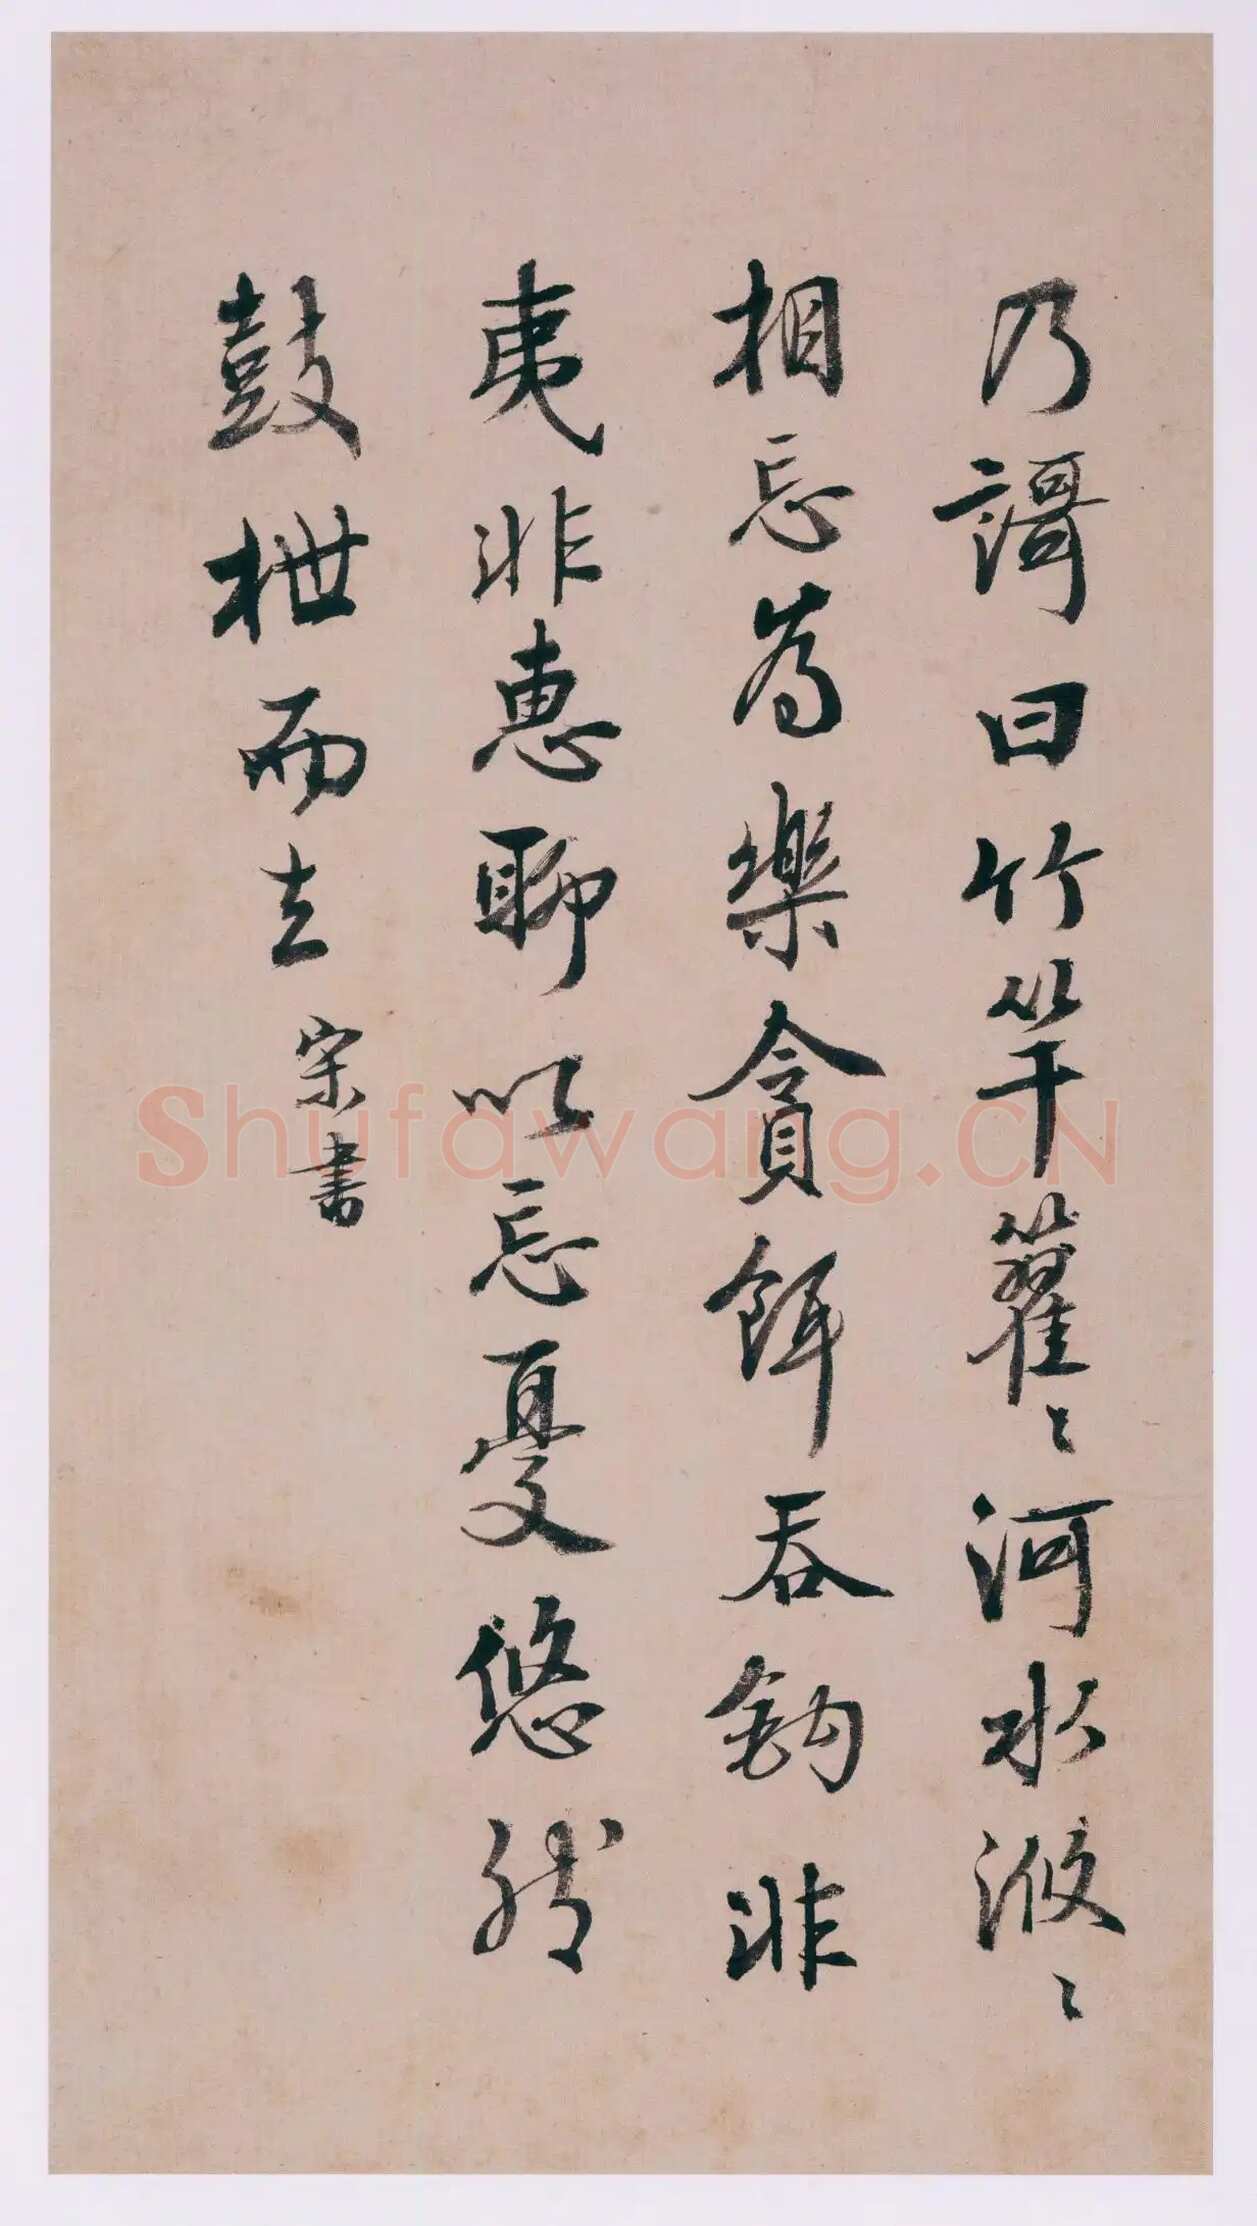 乃謌曰竹竿籊〻河水浟〻
相忘為樂貪餌吞鈎非
夷非惠聊以忘憂悠然
鼓枻而去
宗書
Shufawang.CN